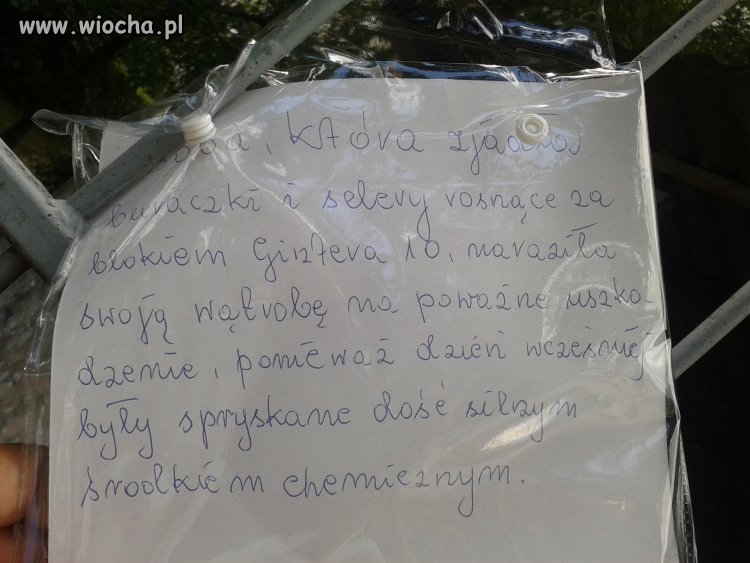 www.wiocha.pl
Osoba, która zjadła
buraczki i selery rosnące za
blokiem Gintera 10, naraziła
swoją wątrobę na poważne uszko-
dzenie, ponieważ dzień wcześniej
były spryskane dość silnym
środkiem chemicznym.